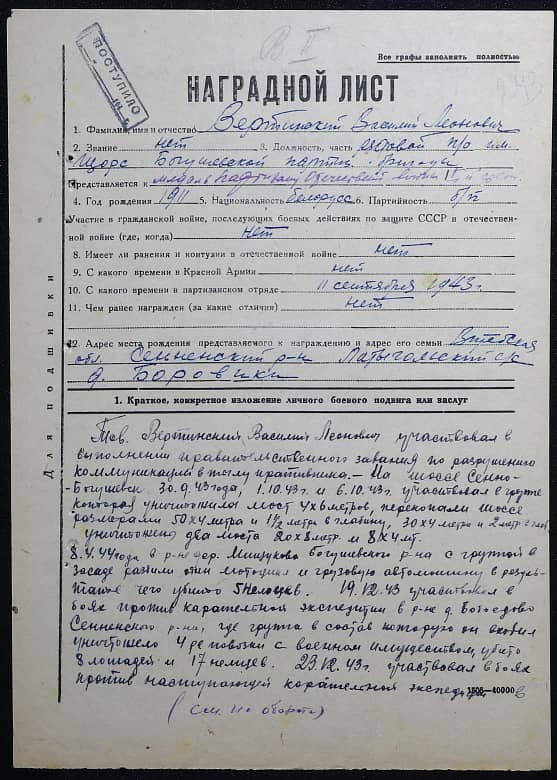 ПОСТУПИЛО
В II
Все графы заполнять полностью
НАГРАДНОЙ ЛИСТ
1. Фамилия, имя и отчество Вертинский Василий Леонович
2. Звание нет 3. Должность, часть ездовой п/о им.
Щорс Богушевской партиз. бригады
Представляется к медаль Партизану Отечественной войны II степ.
4. Год рождения 1911 5. Национальность белорусс 6. Партийность б/п
Участие в гражданской войне, последующих боевых действиях по защите СССР и отечествен-
ной войне (где, когда) нет
8. Имеет ли ранения и контузии в отечественной войне нет
9. С какого времени в Красной Армии нет
10. С какого времени в партизанском отряде 11 сентября 1943 г.
11. Чем ранее награжден (за какие отличия) нет
12. Адрес места рождения представляемого к награждению и адрес его семьи Витебская
обл. Сенненский р-н Латыгольский с/с
д. Боровики
Для подшивки
1. Краткое, конкретное изложение личного боевого подвига или заслуг
Тов. Вертинский Василий Леонович участвовал в
выполнении правительственного задания по разрушению
коммуникаций в тылу противника. – На шоссе Сенно-
Богушевск 30.9.43 года, 1.10.43 г. и 6.10.43 г. участвовал в группе
которая уничтожила мост 4х6 метров, перекопали шоссе
размерами 50х4 метра и 1½ метра в глубину, 30х4 метра и 2 метр в глуб.
уничтожено два моста 20х8 метр и 8х4 мт.
8.4.44 года в р-не дер. Мищуково богушевского р-на с группой в
засаде разбили один мотоцикл и грузовую автомашину в резуль-
тате чего убито 5 немцев. 19.12.43 участвовал в
боях против карательной экспедиции в р-не д.
Сенненского р-на, где группа в состав которую он входил
уничтожено 4 де повозки с военным имуществом, убито
8 лошадей и 17 немцев. 23.12.43 г. участвовал в боях
против наступающей карательной экспед. в
1505—40000
(см. на обороте)